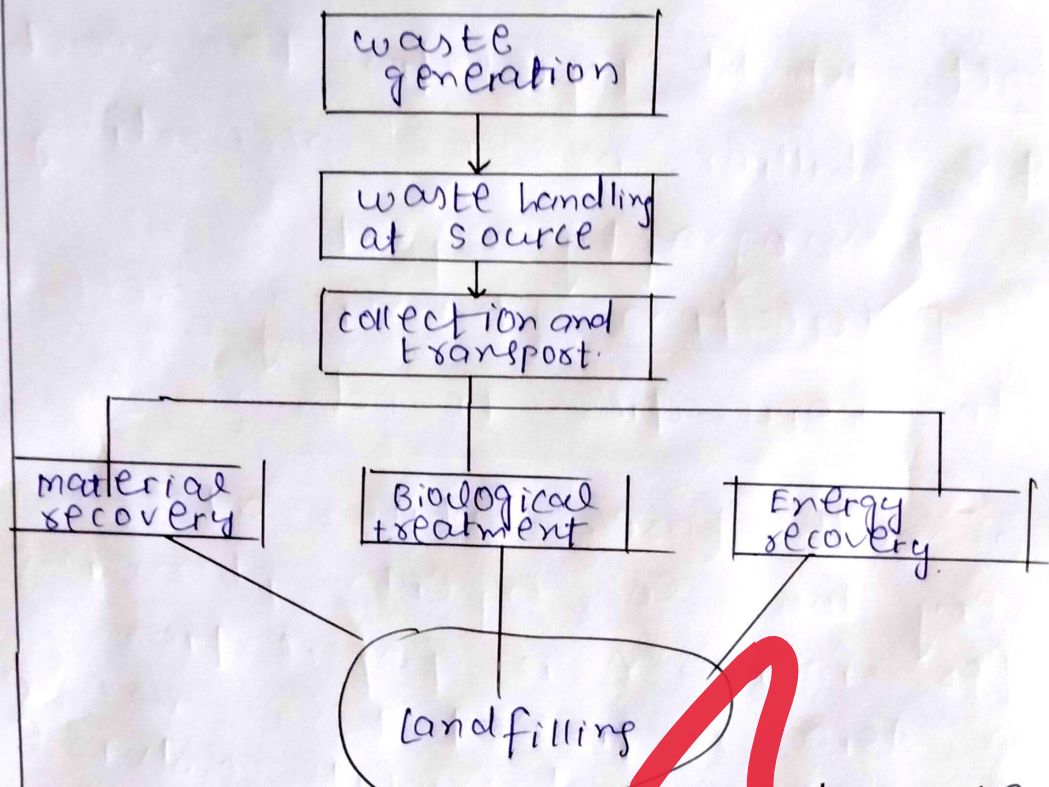 waste
generation
waste handling
at source
collection and
transport.
material
recovery
Biological
treatment
Energy
recovery.
Landfilling